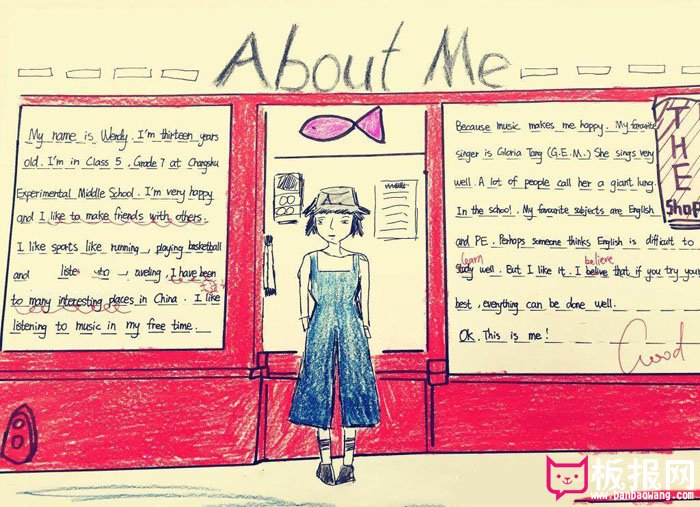 About Me
My name is Werdy. I'm thirteen years
old. I'm in Class 5, Grade 7 at Changshu
Experimental Middle School. I'm very happy
and I like to make friends with others.
I like sports like running, playing basketball
and I have been
to many interesting places in China. I like
listening to music in my free time.
Because music makes me happy. My favourite
singer is Gloria Tang (G.E.M.) She sings very
well. A lot of people call her a giant lung.
In the school, My favourite subjects are English
and PE. Perhaps someone thinks English is difficult to
learn believe
study well. But I like it. I belive that if you try your
best, everything can be done well.
Ok. This is me!
Good
THE
ShoP
板报网
www.banbaowang.com